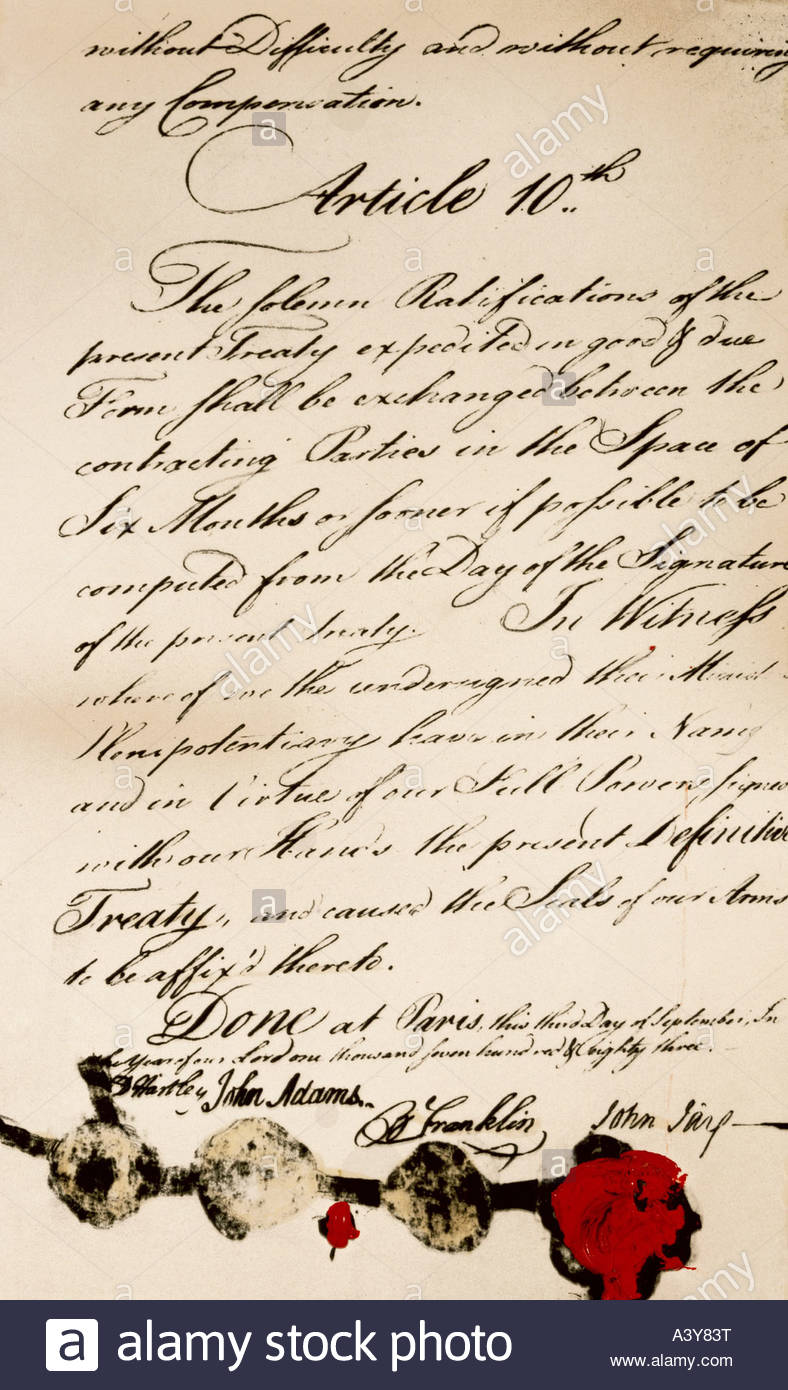 without Difficulty and without requiring
any Compensation.
Article 10.th
The solemn Ratifications of the
present Treaty expedited in good & due
Form shall be exchanged between the
contracting Parties in the Space of
Six Months or sooner if possible to be
computed from the Day of the Signature
of the present Treaty. In Witness
whereof we the undersigned their Minist
Plenipotentiary have in their Name
and in Virtue of our Full Powers signed
with our Hands the present Definitive
Treaty, and caused the Seals of our Arms
to be affix'd thereto.
Done at Paris, this third Day of September, In
the Year of our Lord one thousand seven hundred & eighty three.
D Hartley John Adams.
B Franklin John Jay
alamy
alamy
alamy
alamy
a alamy stock photo
A3Y83T
www.alamy.com